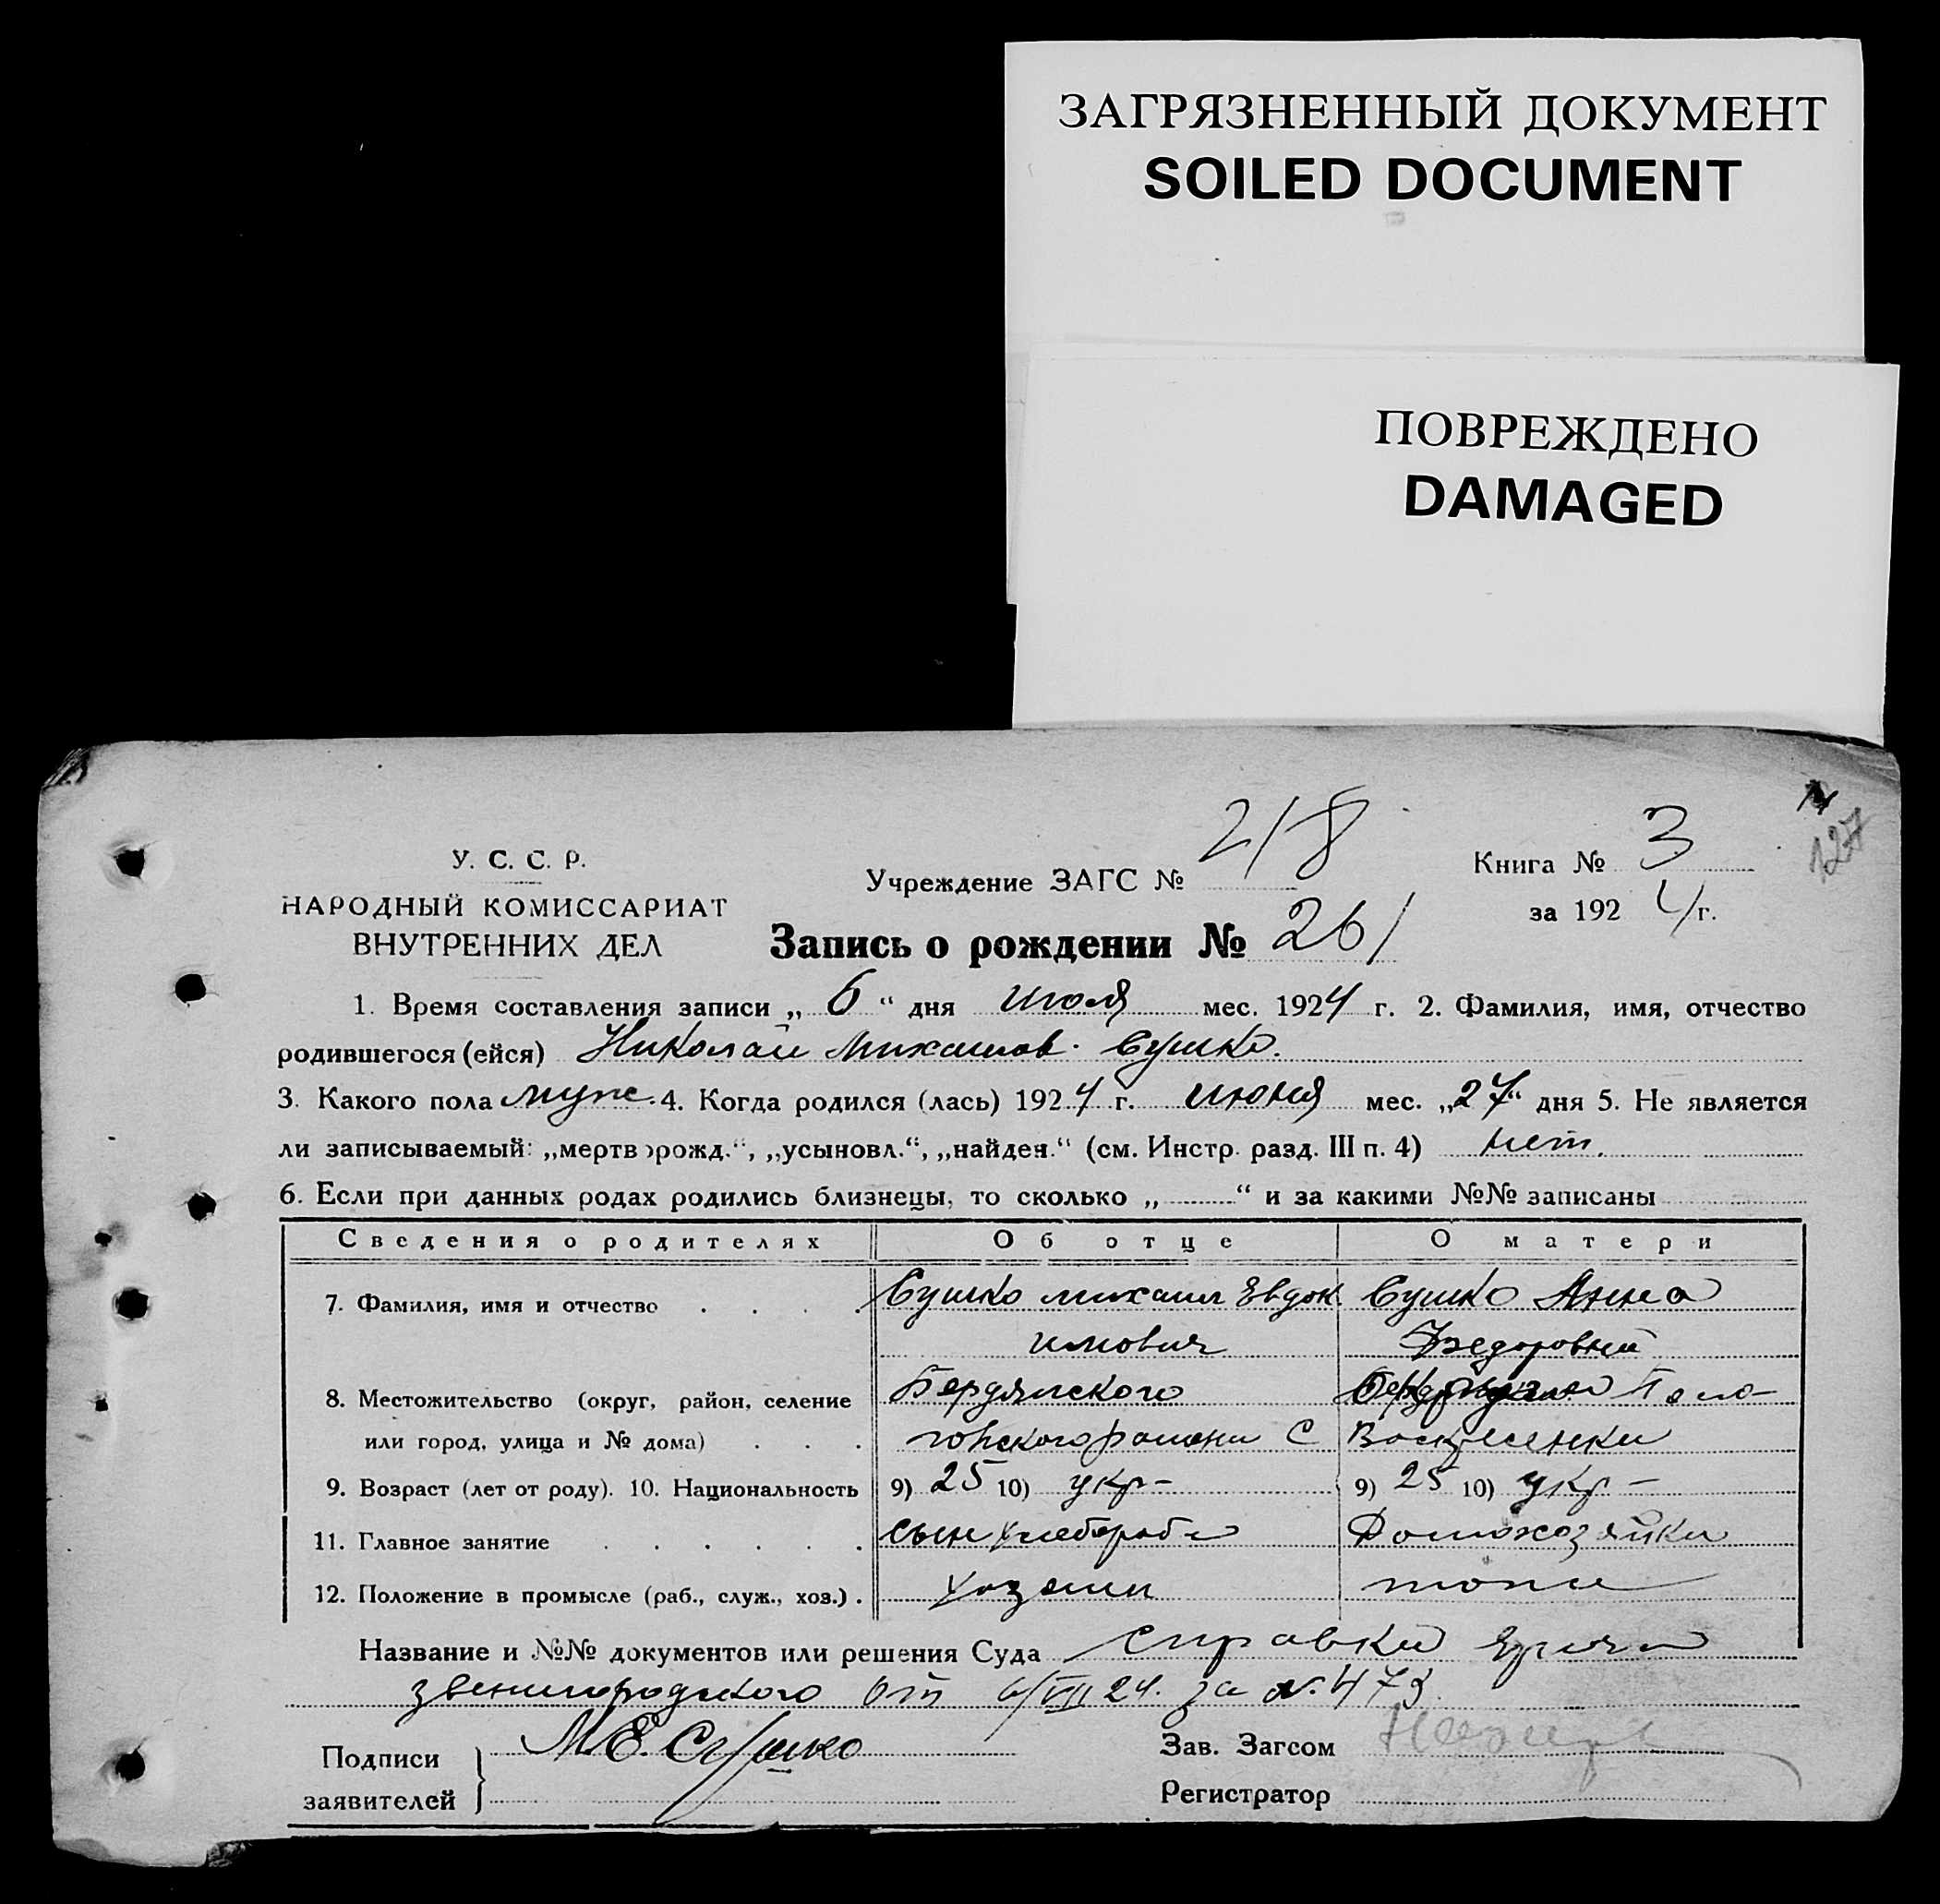 ЗАГРЯЗНЕННЫЙ ДОКУМЕНТ
SOILED DOCUMENT
ПОВРЕЖДЕНО
DAMAGED
127
У. С. С. Р.
НАРОДНЫЙ КОМИССАРИАТ
ВНУТРЕННИХ ДЕЛ
Учреждение ЗАГС № 218
Книга № 3
за 1924 г.
Запись о рождении № 261
1. Время составления записи „ 6 “ дня июля мес. 1924 г. 2. Фамилия, имя, отчество
родившегося (ейся) Николай Михаилов. Сушко.
3. Какого пола муж. 4. Когда родился (лась) 1924 г. июня мес. „27“ дня 5. Не является
ли записываемый: „мертворожд.“, „усыновл.“, „найден.“ (см. Инстр. разд. III п. 4) нет.
6. Если при данных родах родились близнецы, то сколько „ “ и за какими №№ записаны
Сведения о родителях Об отце О матери
7. Фамилия, имя и отчество Сушко Михаил Евдок Сушко Анна
имович Федоровна
8. Местожительство (округ, район, селение Бердянского Поло
или город, улица и № дома) гонского района С Воскресенки
9. Возраст (лет от роду). 10. Национальность 9) 25 10) укр- 9) 25 10) укр-
11. Главное занятие сын хлебороба Домохозяйка
12. Положение в промысле (раб., служ., хоз.) хозяин
Название и №№ документов или решения Суда справка врача
звенигородского от 6/VII 24. за №. 473.
Подписи М.Е. Сушко Зав. Загсом
заявителей Регистратор